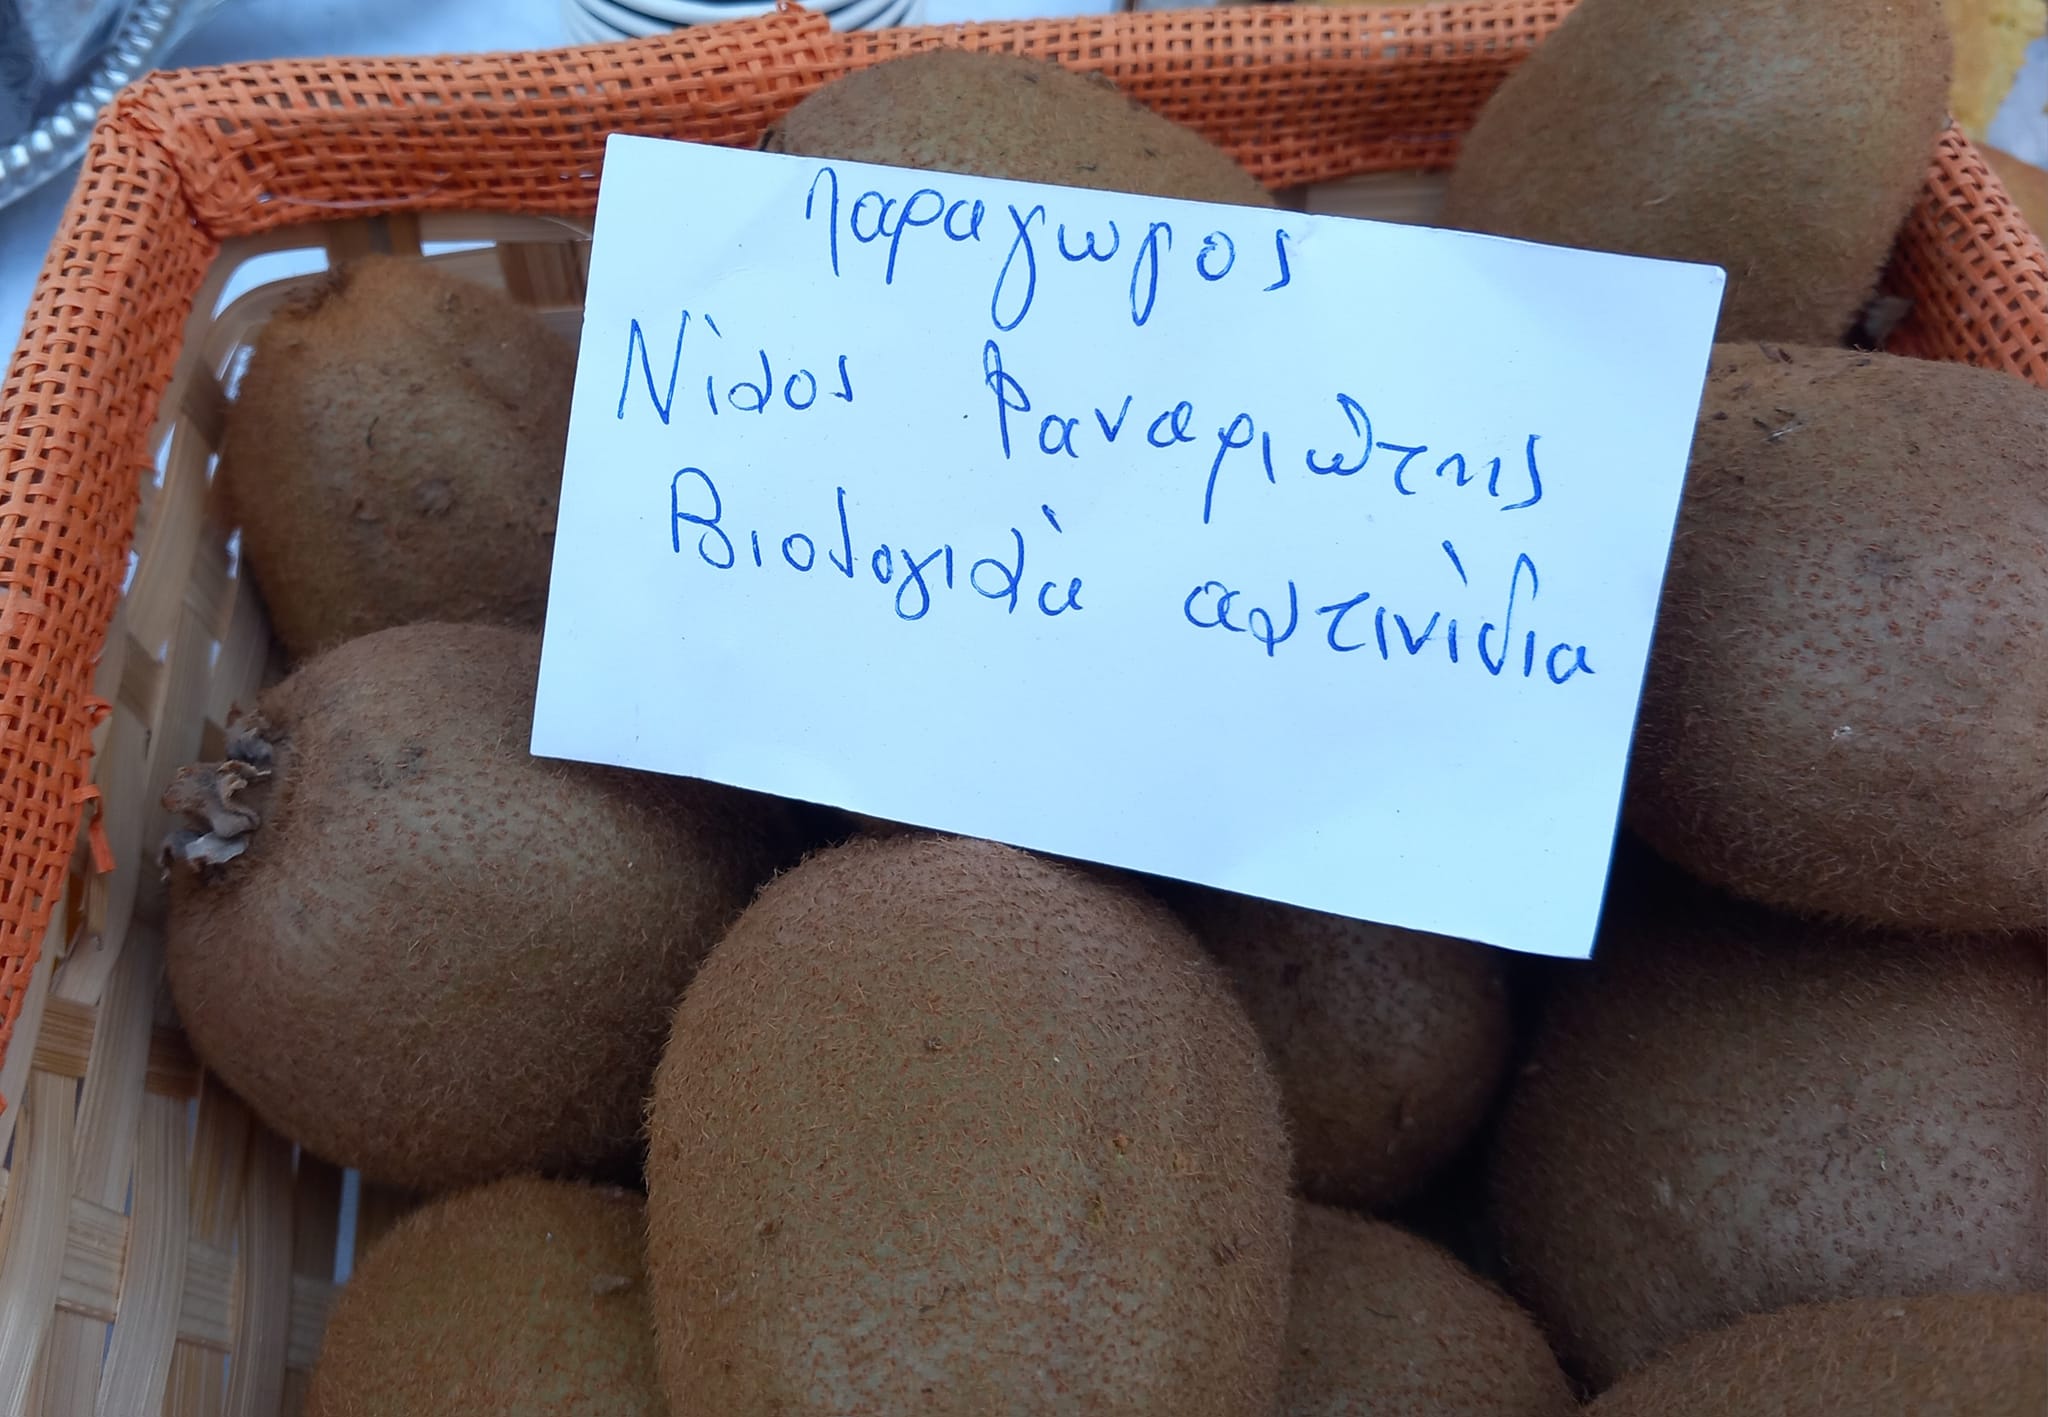 Παραγωγος
Νίκος Φαναριώτης
Βιολογικά ακτινίδια